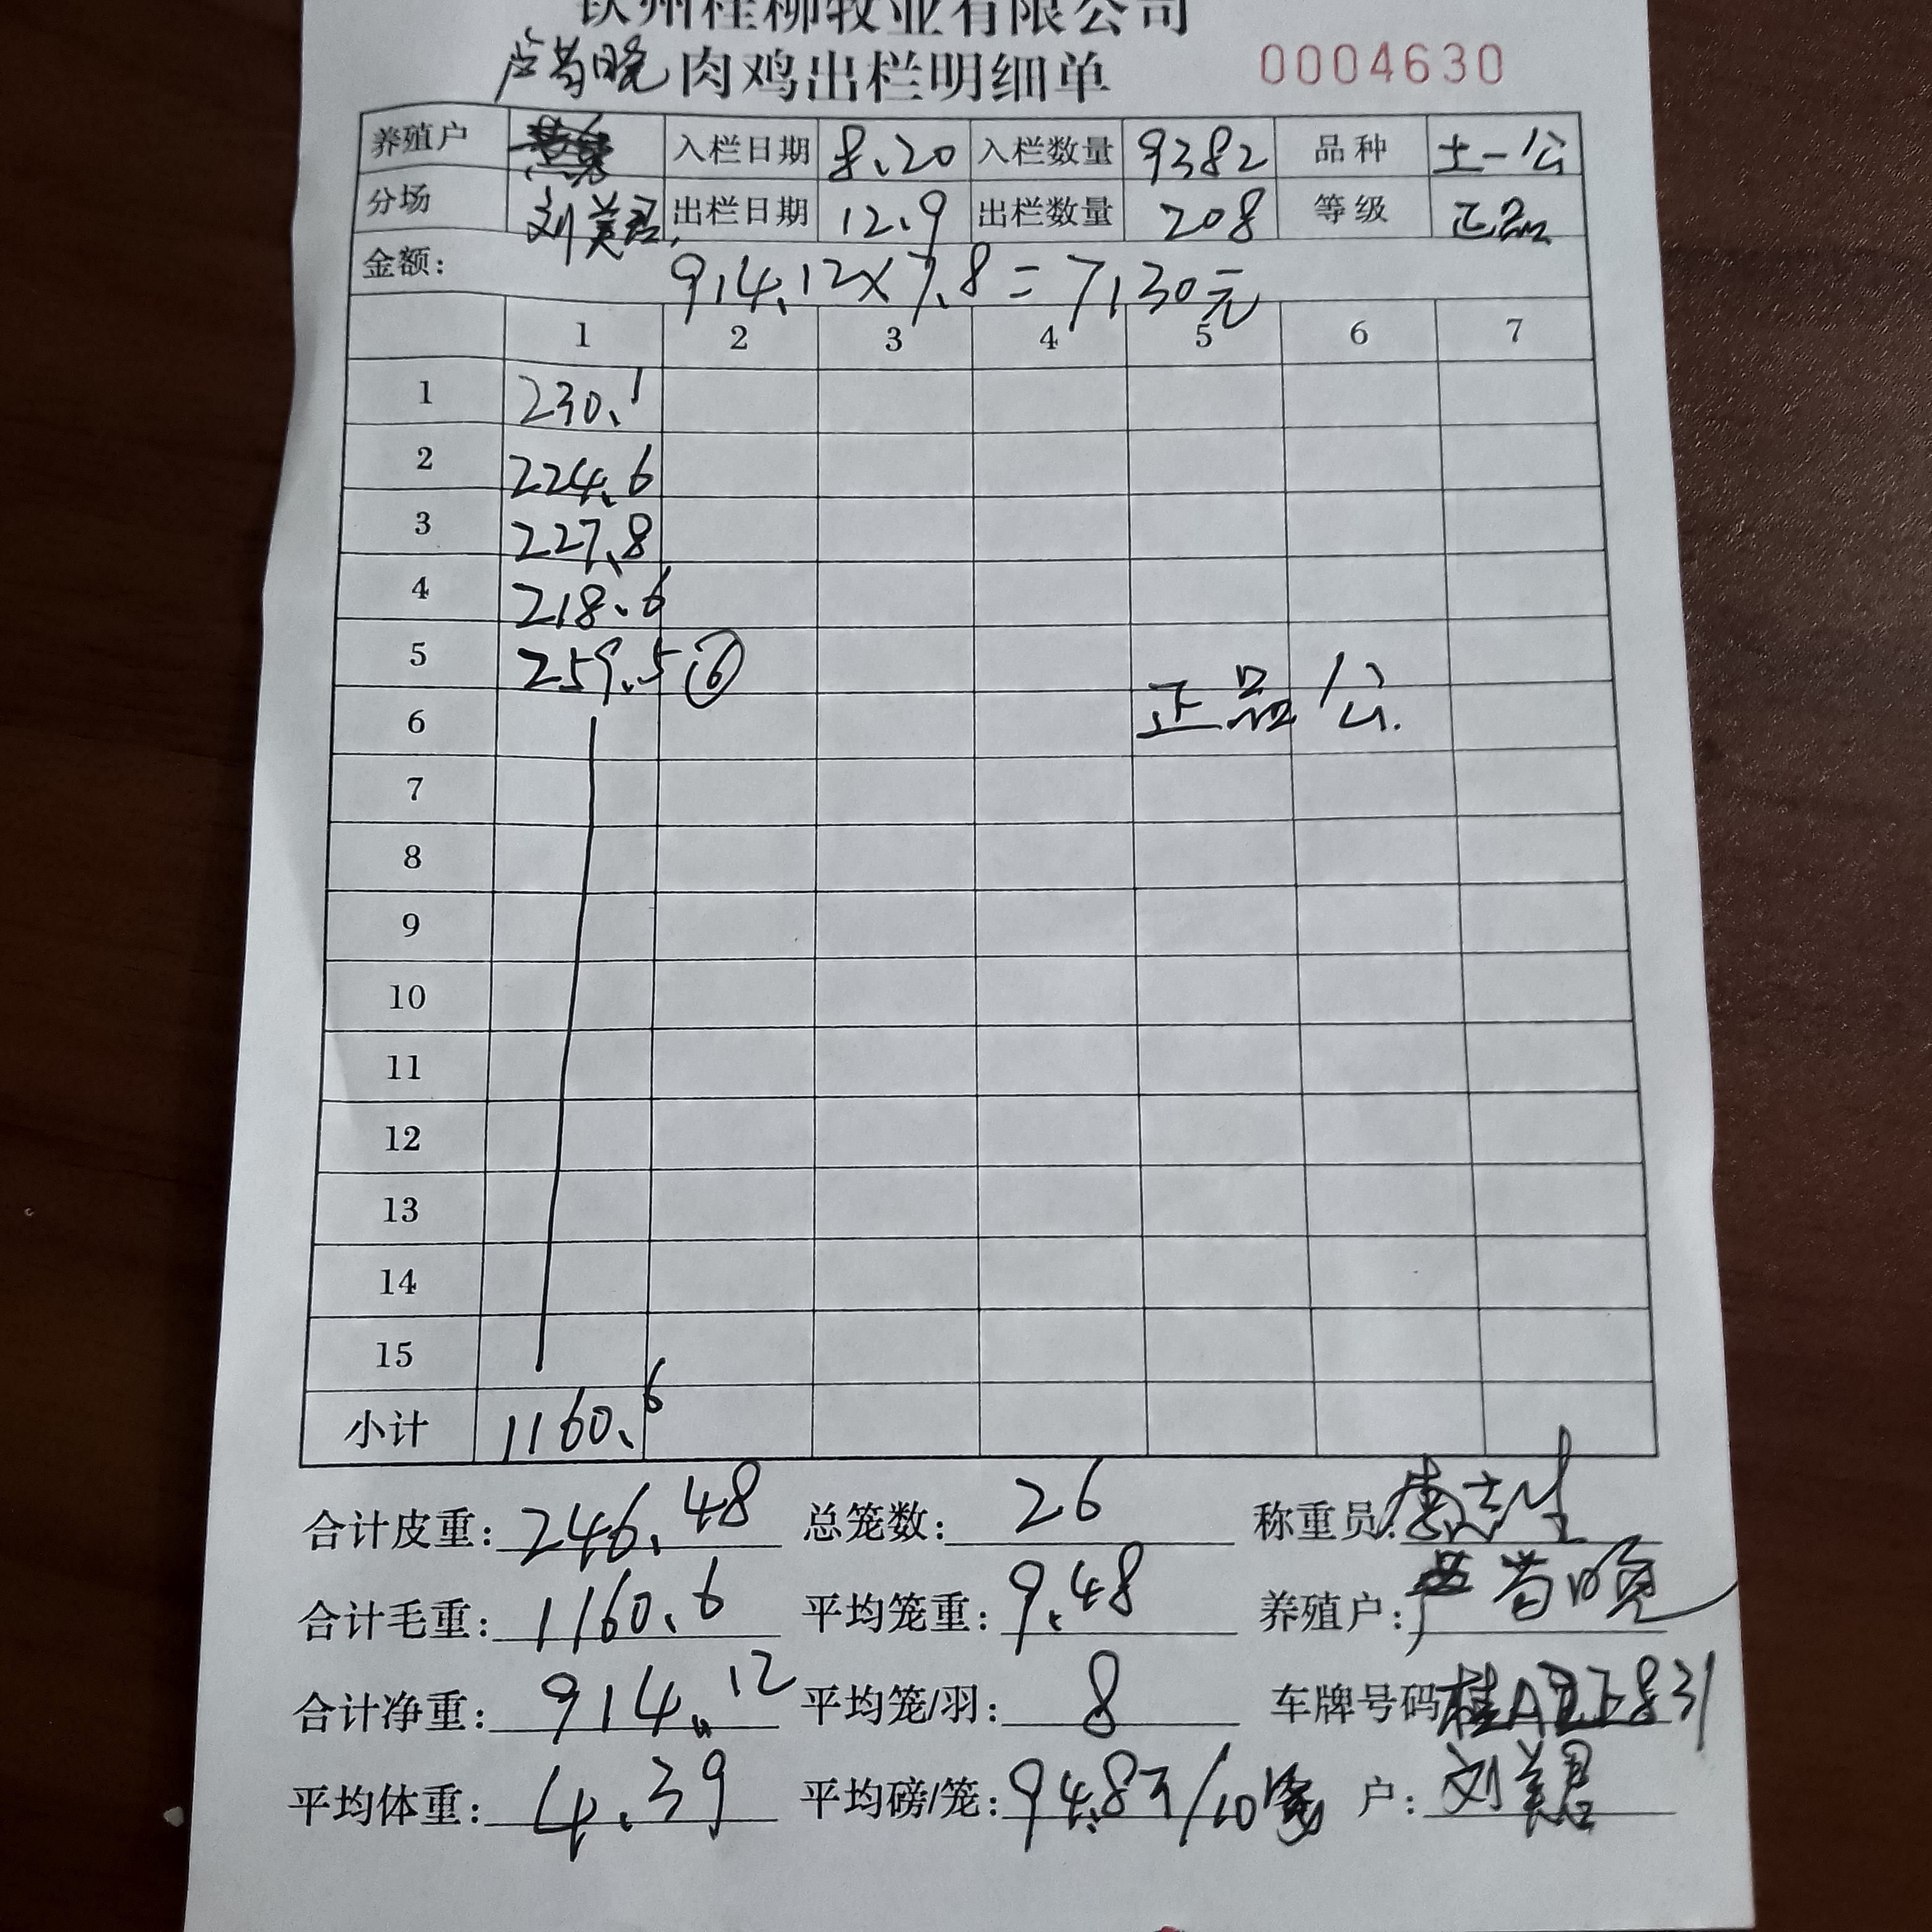 钦州桂柳牧业有限公司
卢芳晓 肉鸡出栏明细单 0004630
养殖户 入栏日期 8.20 入栏数量 9382 品种 土一公
分场 刘美君 出栏日期 12.9 出栏数量 208 等级 正品
金额: 914.12×7.8=7130元
1 2 3 4 5 6 7
1 230.1
2 224.6
3 227.8
4 218.6
5 259.5 ⑥
6 正品公
7
8
9
10
11
12
13
14
15
小计 1160.6
合计皮重: 246.48 总笼数: 26 称重员:
合计毛重: 1160.6 平均笼重: 9.48 养殖户: 卢芳晓
合计净重: 914.12 平均笼/羽: 8 车牌号码 桂A 831
平均体重: 4.39 平均磅/笼: 94.8斤/10笼 户: 刘美君